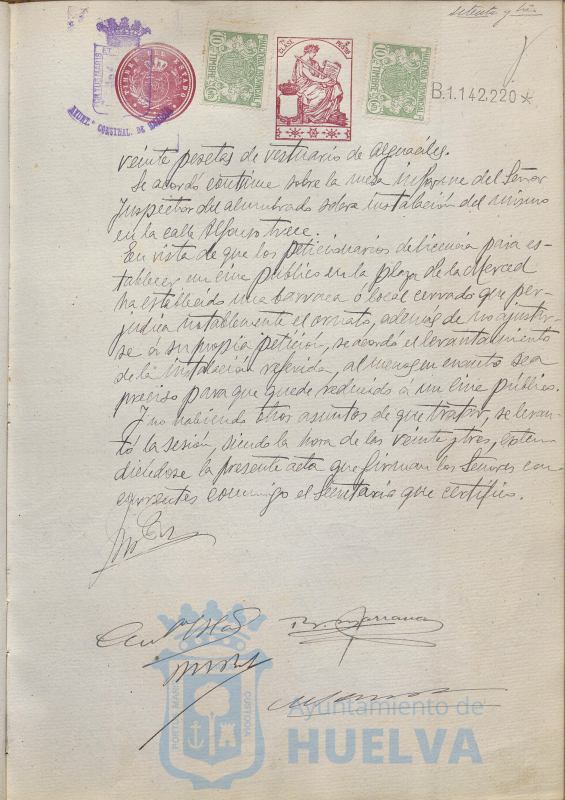 setenta y tres
TIMBRE DEL ESTADO
AYUNT.º CONSTNAL. DE HUELVA
7ª CLASE
PESETAS
B.1.142,220*
veinte pesetas de vestuario de Alguaciles.
Se acordó continue sobre la mesa informe del Señor
Inspector del alumbrado sobre instalación del mismo
en la calle Alfonso trece.
En vista de que los peticionarios de licencia para es-
tablecer un cine público en la plaza de la Merced
ha establecido una barraca ó local cerrado que per-
judica notablemente el ornato, además de no ajustar-
se á su propia petición, se acordó el levantamiento
de la instalación referida, al menos en cuanto sea
preciso para que quede reducido á un cine público.
Y no habiendo otros asuntos de que tratar, se levan-
tó la sesión, siendo la hora de las veinte y tres, exten
diéndose la presente acta que firman los Señores con-
currentes conmigo el Secretario que certifico.
PORTUS MARIS
CUSTODIA
Ayuntamiento de
HUELVA